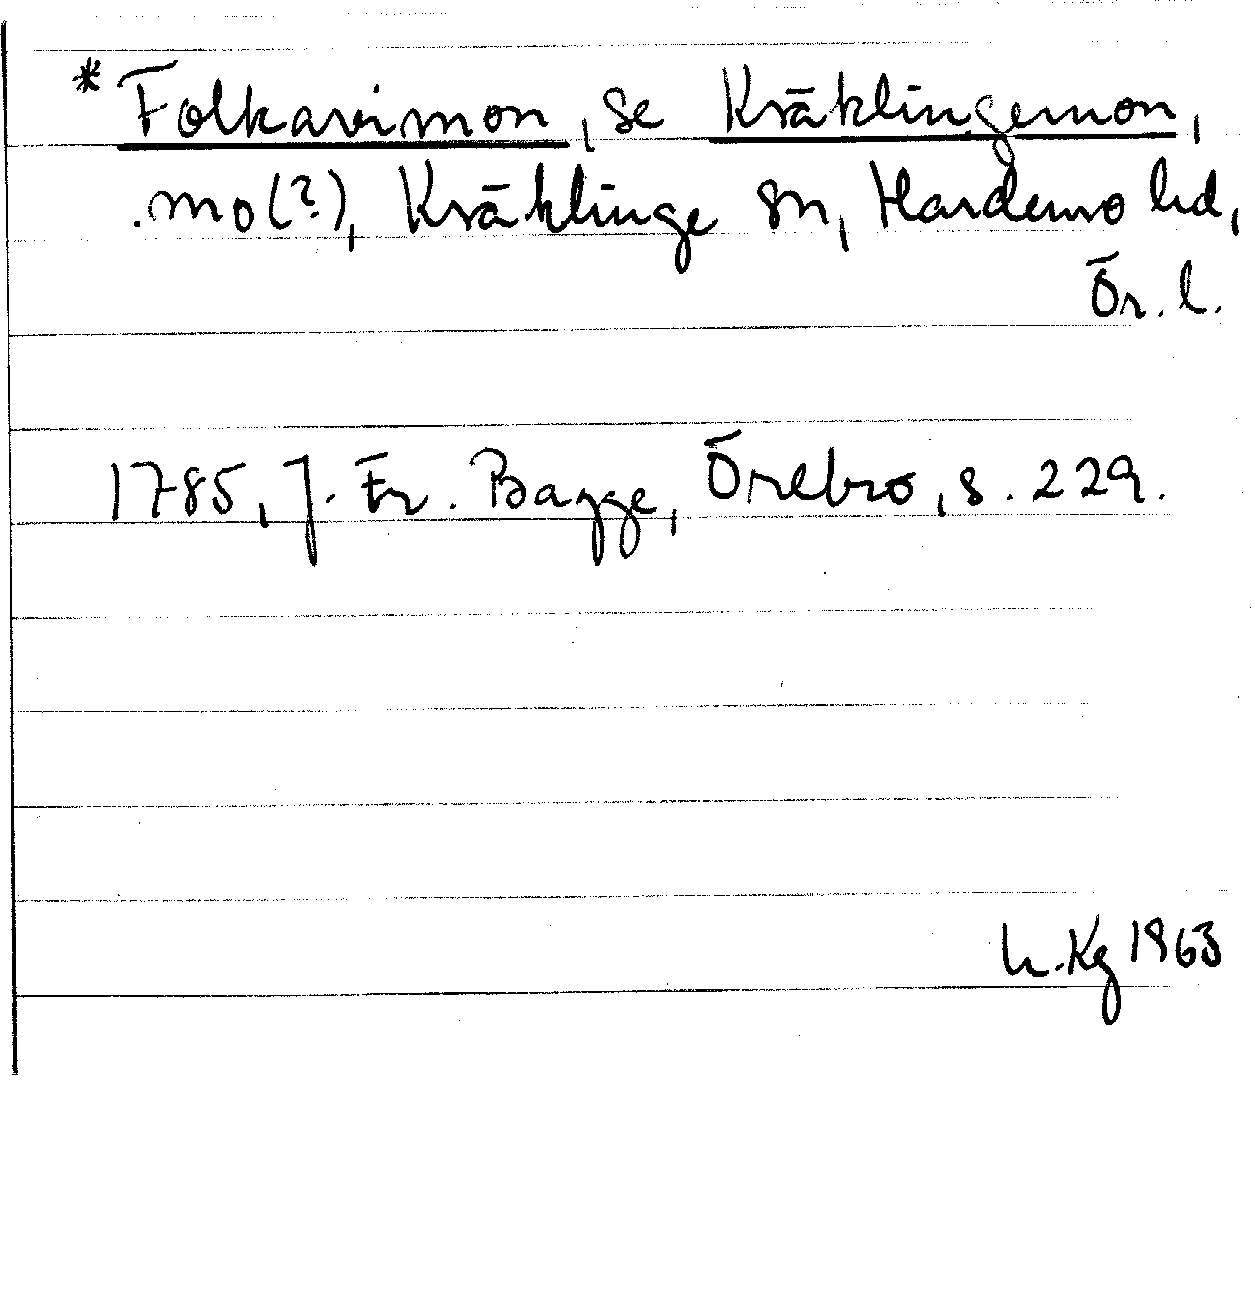 * Folkavimon, se Kräklingemon,
mo(?), Kräklinge sn, Hardemo hd,
Ör. l.
1785, J. Fr. Bagge, Örebro, s. 229.
h. Kg 1963